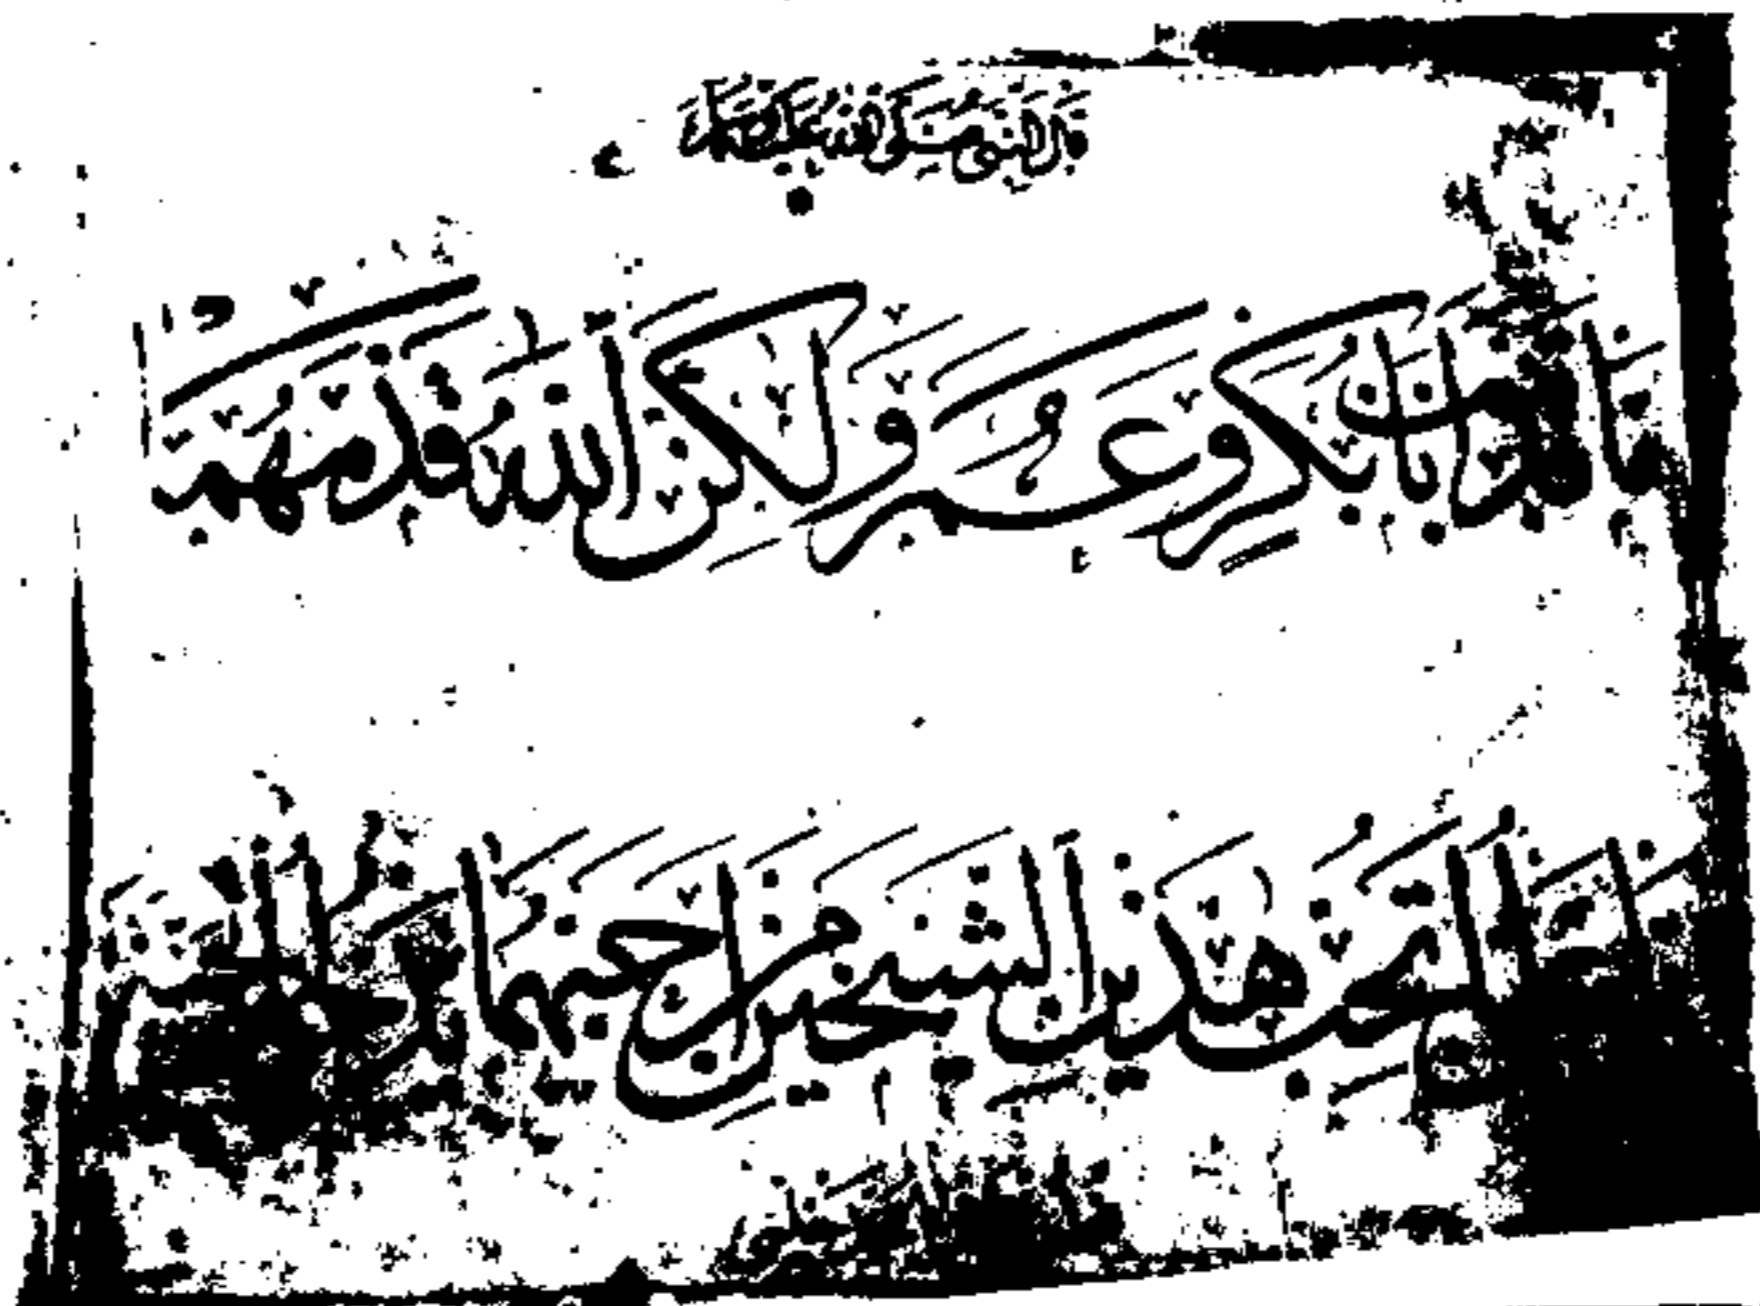 قال النبي صلى الله عليه وسلم
ما قدمت أبا بكر وعمر ولكن الله قدمهما
تحب هذين الشيخين من أحبهما الجنة